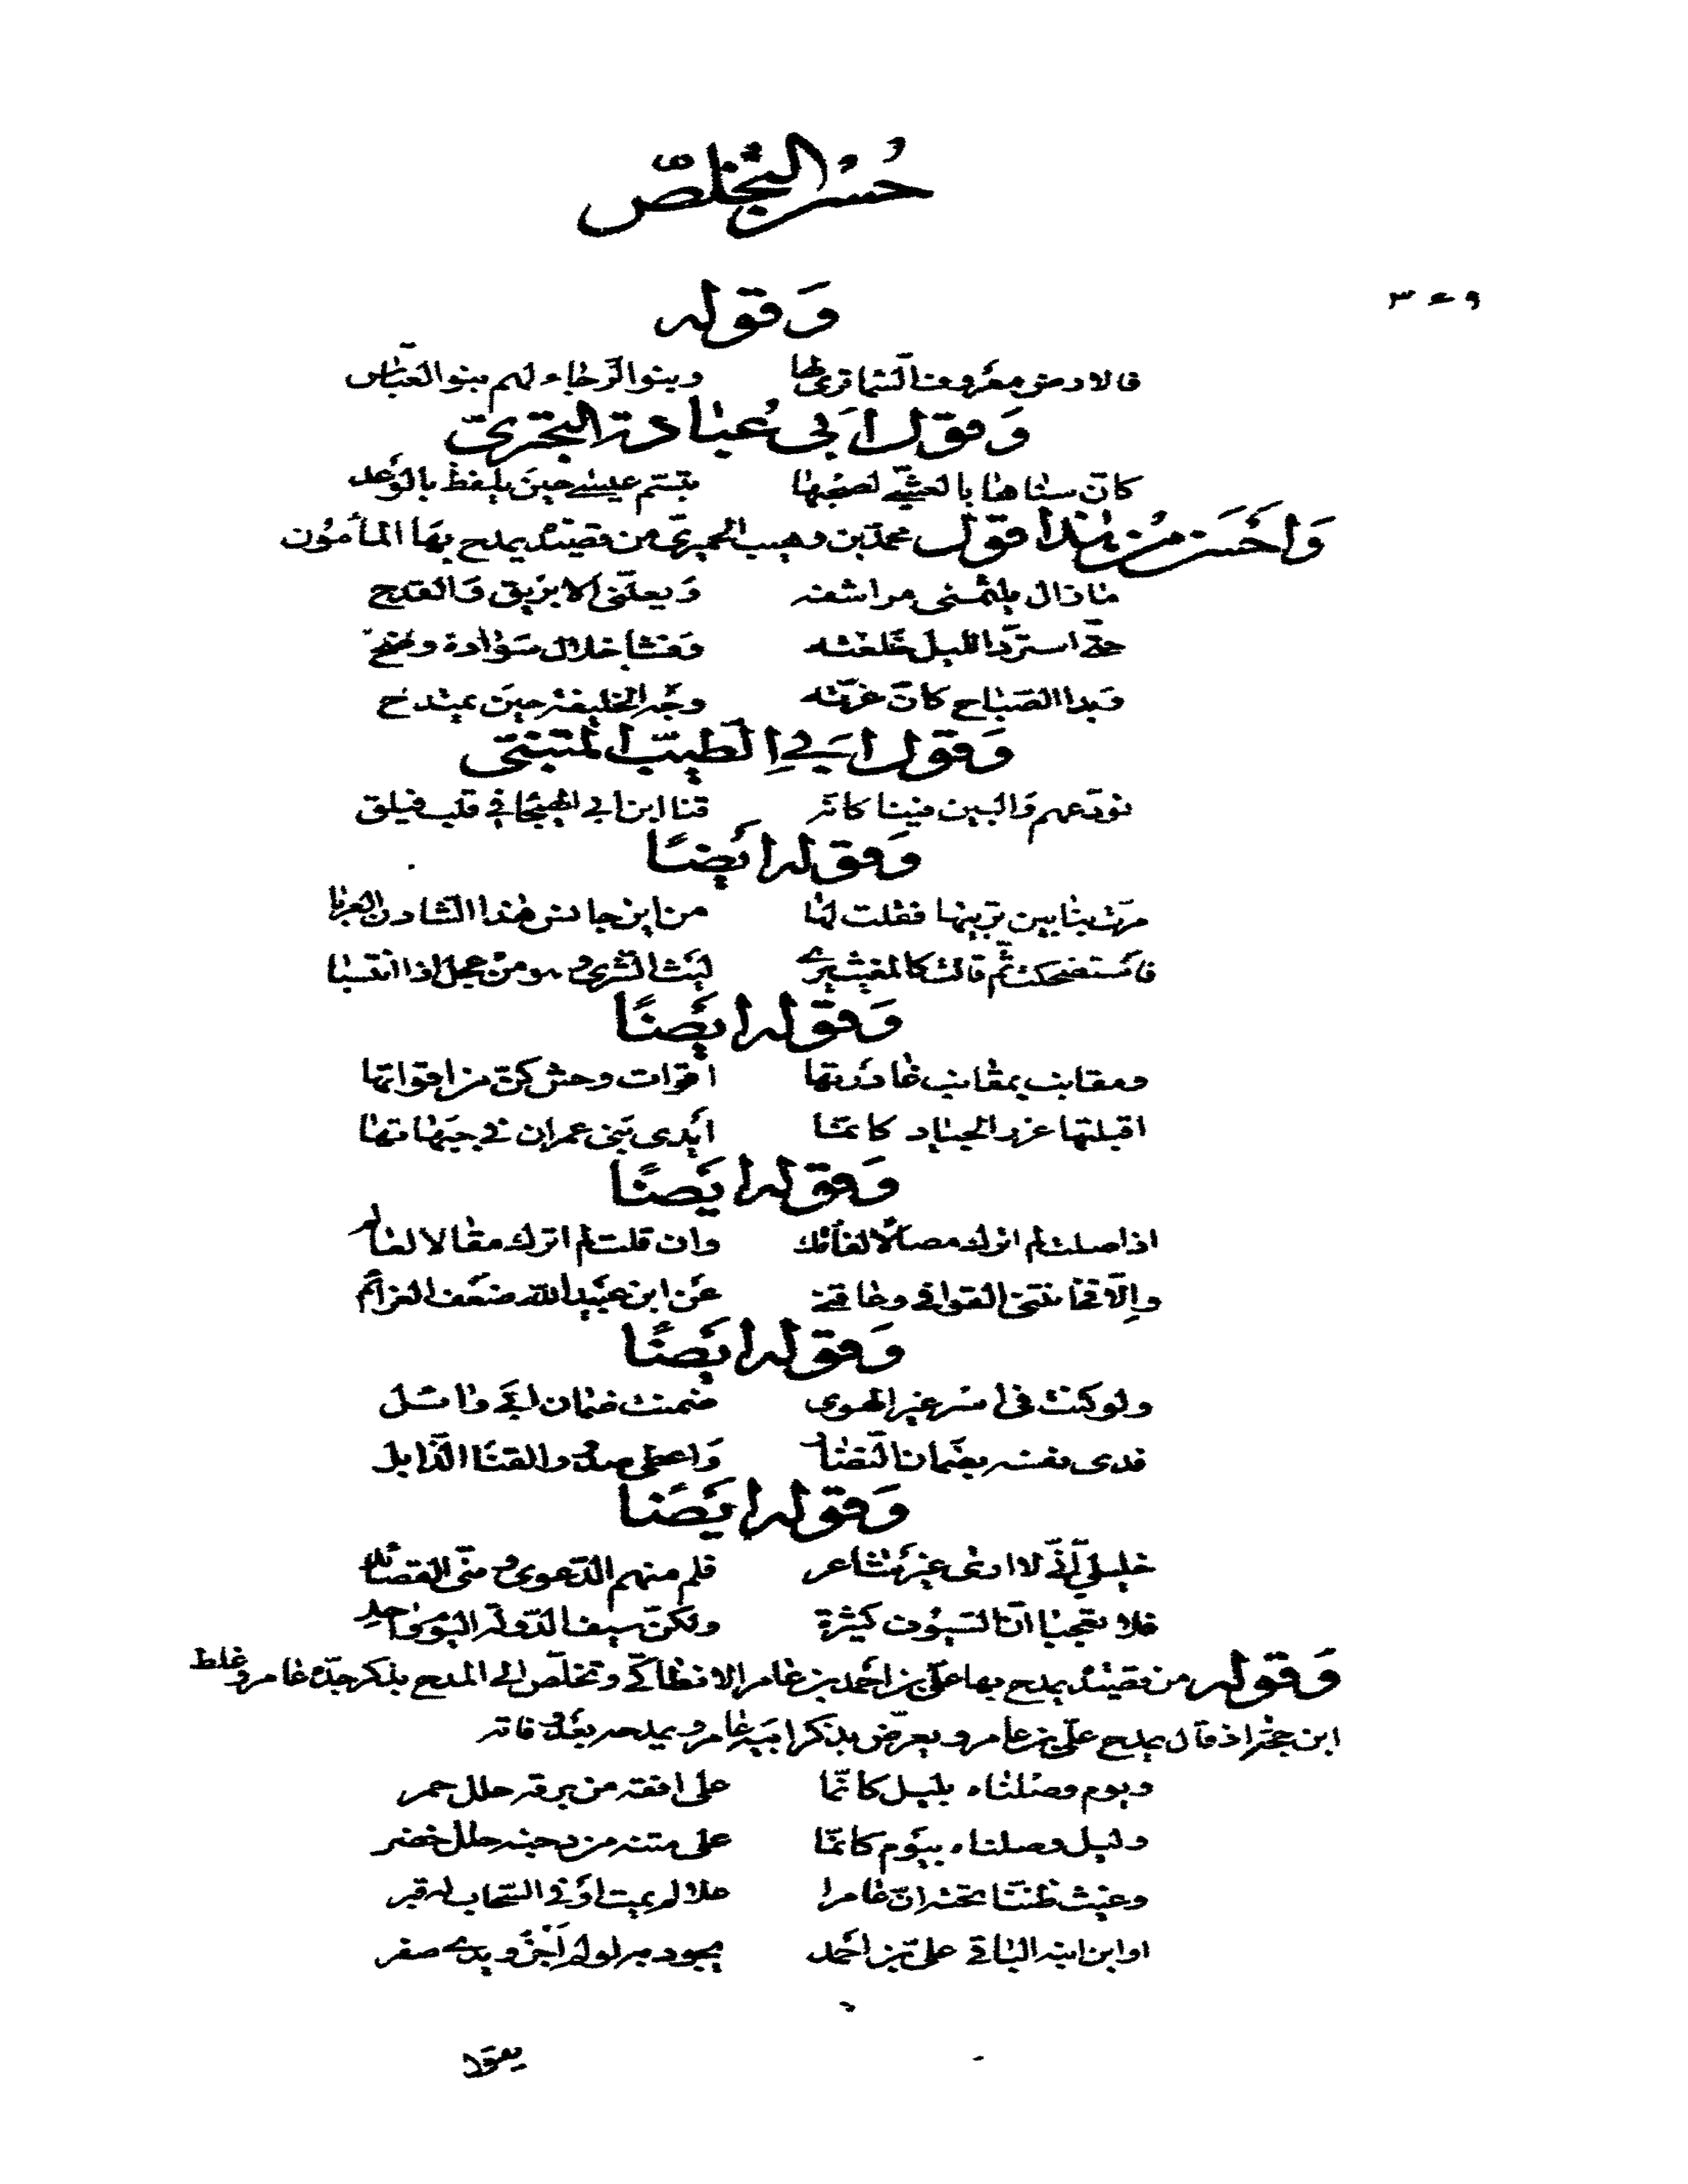 حُسْنُ التَّخَلُّصِ
وَقوله
فالارض معروف السما قرى لها وبنوا الرجاء لهم بنو العبّاس
وَقول ابَى عُبادة البحتريّ
كانّ سناها بالعشيّ لصبحها تبسّم عيسى حين يلفظ بالوَعد
وَاحَسَن مُن هٰذا قول محمّد بن وهيب الحميريّ من قصيدة يمدح بهَا المأمُون
ما زال يلثمنى مراشفه وَيعلّنى الابريق وَالقدح
حتّى استردّ الليل خلعته وَفشا خلال سَواده وضح
وَبدا الصّباح كانّ غرّته وجه الخليفة حين يمتدح
وَقول ابَي الطيّب المتنبّى
نودّعهم وَالبين فينا كانّه قنا ابن ابي الهيجا في قلب فيلق
وَقوله أيضًا
مرّت بنا بين تربيها فقلت لها من اين جانس هٰذا الشادن العربا
فاستضحكت ثمّ قالت كالمغيث يرى ليث الشرى وهو من عجل اذا انتسبا
وَقوله ايَضًا
ومقانب بمقانب غادرتها اقوات وحش كنّ من اقواتها
اقبلتها غرر الجياد كانمّا ايدى بَنى عمران في جبهاتها
وَقوله ايَضًا
اذا صلت لم اترك مصالا لفاتك وان قلت لم اترك مقالا لعالم
وإلّا فخانتنى القوافي وعاقنى عَن ابن عبيد الله ضعف العزائم
وَقوله ايَضًا
ولو كنت فى اسر غير الهوى ضمنت ضمان ابي وائل
فدى نفسه بضمان النضار وَاعطى صدور القنا الذّابل
وَقوله ايَضًا
خليليّ انّي لا ارى غير شاعر فلم منهم الدّعوى ومنّى القصائد
فلا تعجبا انّ السّيوف كثيرة ولكنّ سيف الدّولة اليوم واحد
وَقوله من قصيدة يمدح بها علىّ بن احَمد بن عامر الانطاكّي وتخلّص الى المدح بذكر جدّه عامر وغلط
ابن حجّة اذ قال يمدح علىّ بن عامر ويعرّض بذكر ابيه عامر ويمدحه بعد وفاته
ويوم وصلناه بليل كانّما على افقه من برقه حلل حمر
وليل وصلناه بيوم كانّما على متنه من دجنه حلل خضر
وغيث ظننّا تحته انّ عامرا علا لم يمت اوَ في السّحاب له قبر
او ابن ابنه الباقي علىّ بن احَمد يجود به لو لم اَجُز ويدي صفر